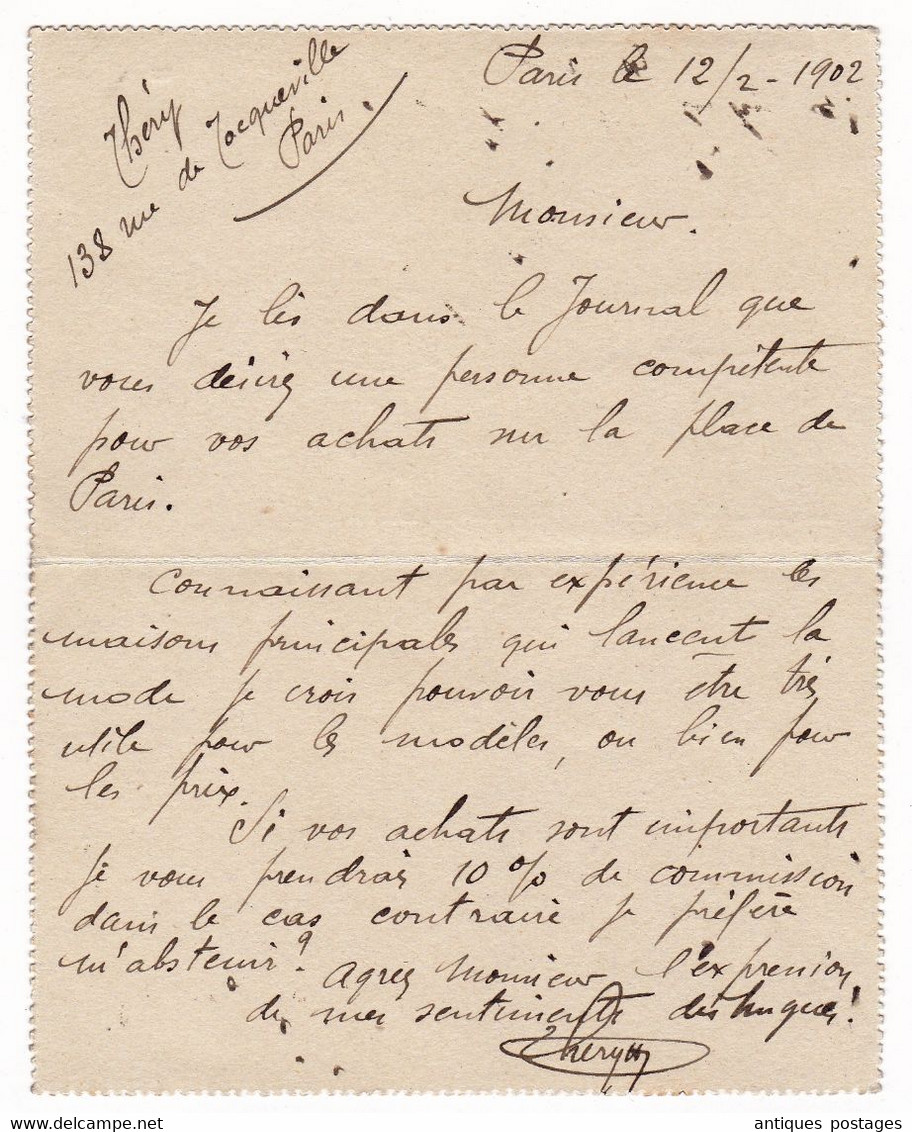 Théry
138 rue de Tocqueville
Paris.
Paris le 12/2 - 1902
Monsieur.
Je lis dans le Journal que
vous désirez une personne compétente
pour vos achats sur la place de
Paris.
Connaissant par expérience les
maisons principales qui lancent la
mode je crois pouvoir vous être très
utile pour les modèles, ou bien pour
les prix.
Si vos achats sont importants
je vous prendrais 10 % de commission
dans le cas contraire je préfère
m'abstenir.
Agréez Monsieur l'expression
de mes sentiments distingués!
Théry
antiques postages